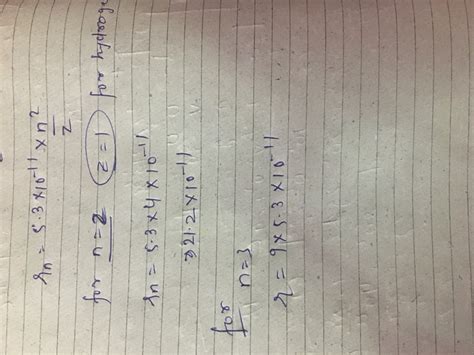 rn = 5.3×10⁻¹¹ × n²/z
for n=2 z=1 for hydroge
rn = 5.3×4×10⁻¹¹
⇒21.2×10⁻¹¹
for n=3
r = 9×5.3×10⁻¹¹